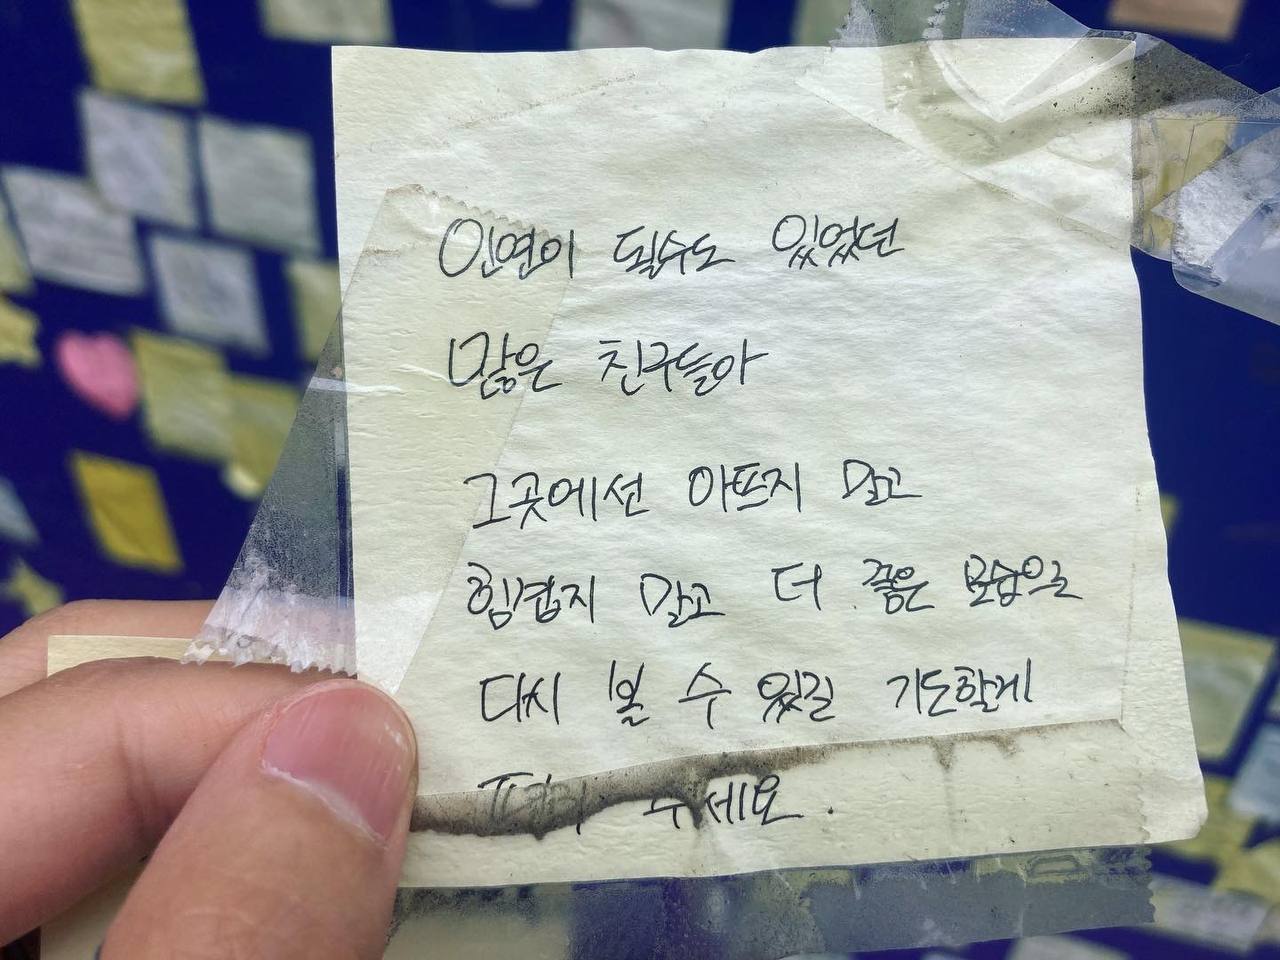 인연이 될수도 있었던
많은 친구들아
그곳에선 아프지 말고
힘겹지 말고 더 좋은 모습으로
다시 볼 수 있길 기도할게
편히 쉬세요.